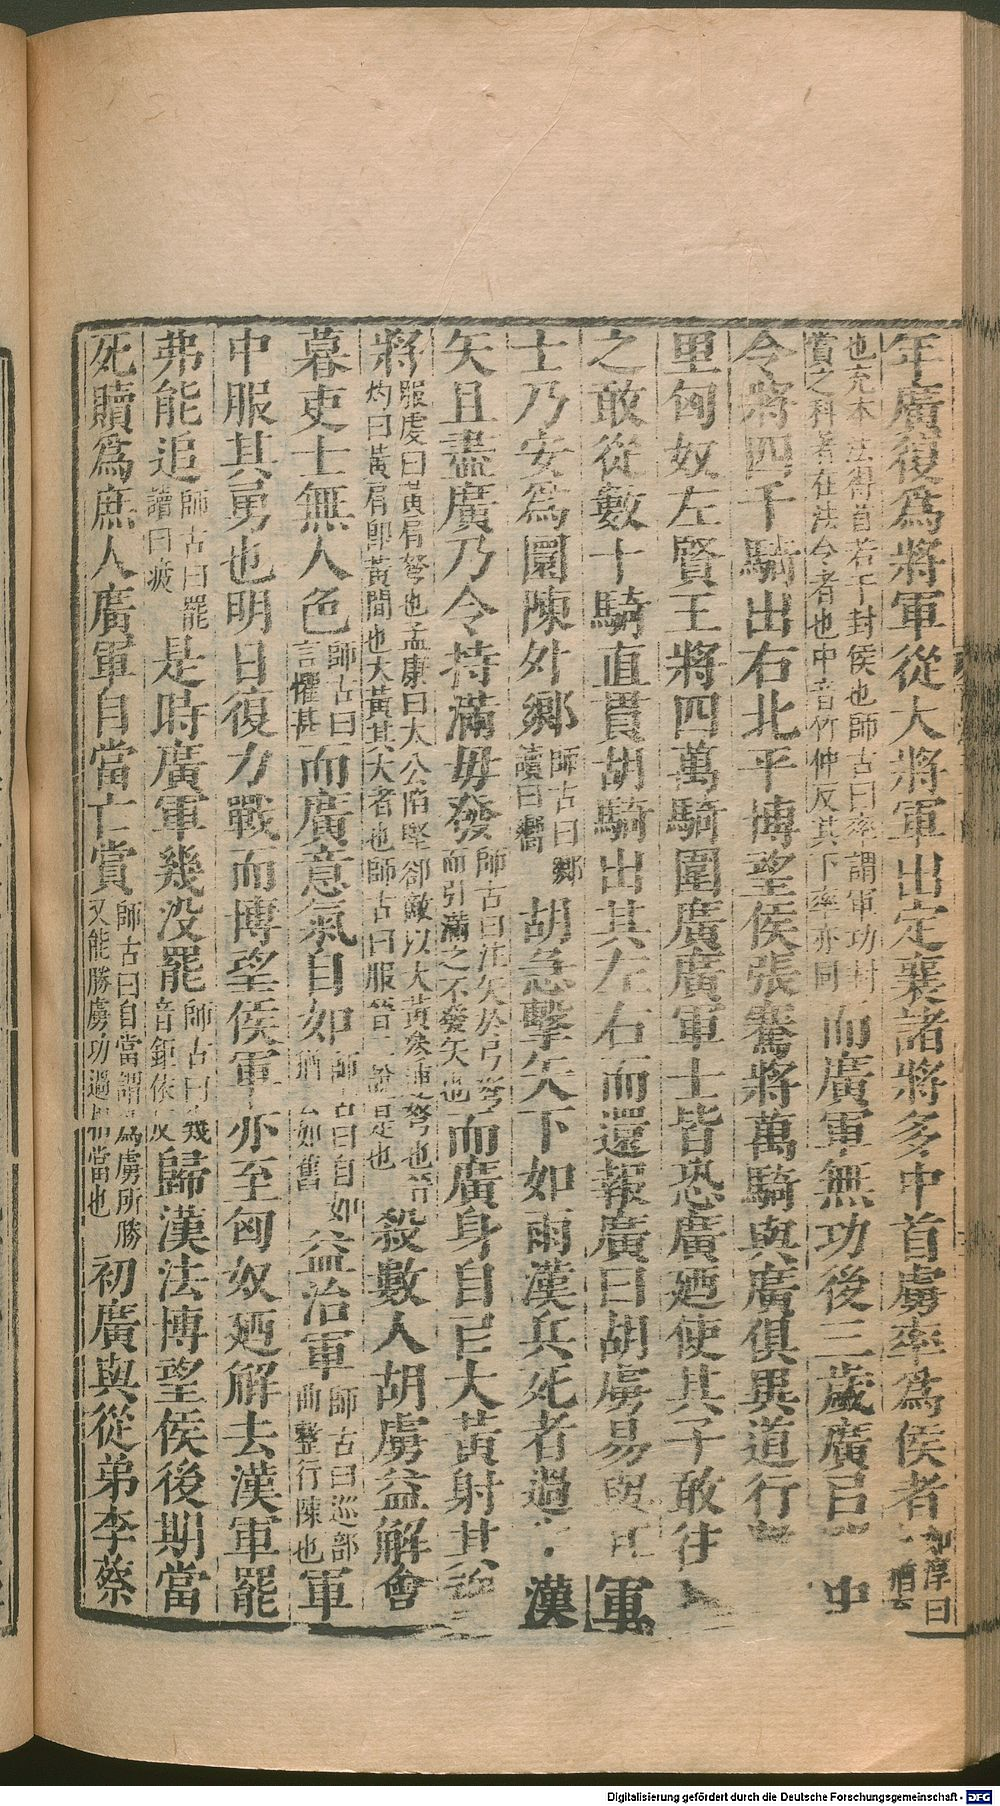 年廣復爲將軍從大將軍出定襄諸將多中首虜率爲侯者如淳曰
也充本法得首若干封侯也師古曰率謂軍功封
賞之科著在法令者也中音竹仲反其下率亦同而廣軍無功後三歲廣
令將四千騎出右北平博望侯張騫將萬騎與廣俱異道行
里匈奴左賢王將四萬騎圍廣廣軍士皆恐廣廼使其子敢往
之敢從數十騎直貫胡騎出其左右而還報廣曰胡虜易與 軍
士乃安爲圜陳外鄉師古曰鄉
讀曰嚮胡急擊矢下如雨漢兵死者過 漢
矢且盡廣乃令持滿毋發師古曰注矢於弓弩
而引滿之不發矢也而廣身自㠯大黃射其
將服虔曰黃肩弩也孟康曰太公陷堅卻敵以大黃參連弩也晉
灼曰黃肩即黃間也大黃其大者也師古曰服晉二說是也殺數人胡虜益解會
暮吏士無人色師古曰
言懼甚而廣意氣自如師古曰自如
猶 如舊益治軍師古曰巡部
曲整行陳也軍
中服其勇也明日復力戰而博望侯軍亦至匈奴廼解去漢軍罷
弗能追師古曰罷
讀曰疲是時廣軍幾沒罷師古曰幾
音鉅依反歸漢法博望侯後期當
死贖爲庶人廣軍自當亡賞師古曰自當謂爲虜所勝
又能勝虜功過相當也初廣與從弟李蔡